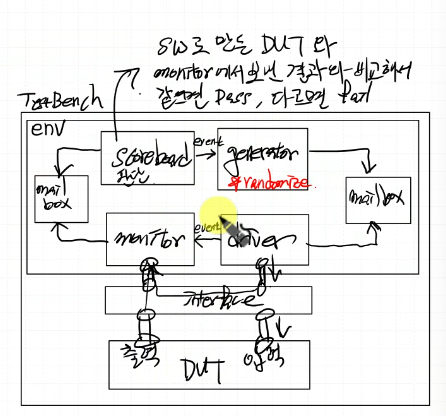 SW로 만든 DUT 와
monitor에서 보낸 결과 와 비교해서
같으면 Pass, 다르면 Fail
TestBench
env
scoreboard
판단
event
generator
*randomize
mail
box
mailbox
monitor
event
driver
interface
출력
입력
DUT